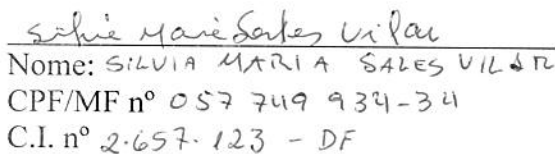 Silvia Maria Sales Vilar
Nome: SILVIA MARIA SALES VILAR
CPF/MF nº 057 749 934-34
C.I. nº 2.657.123 - DF